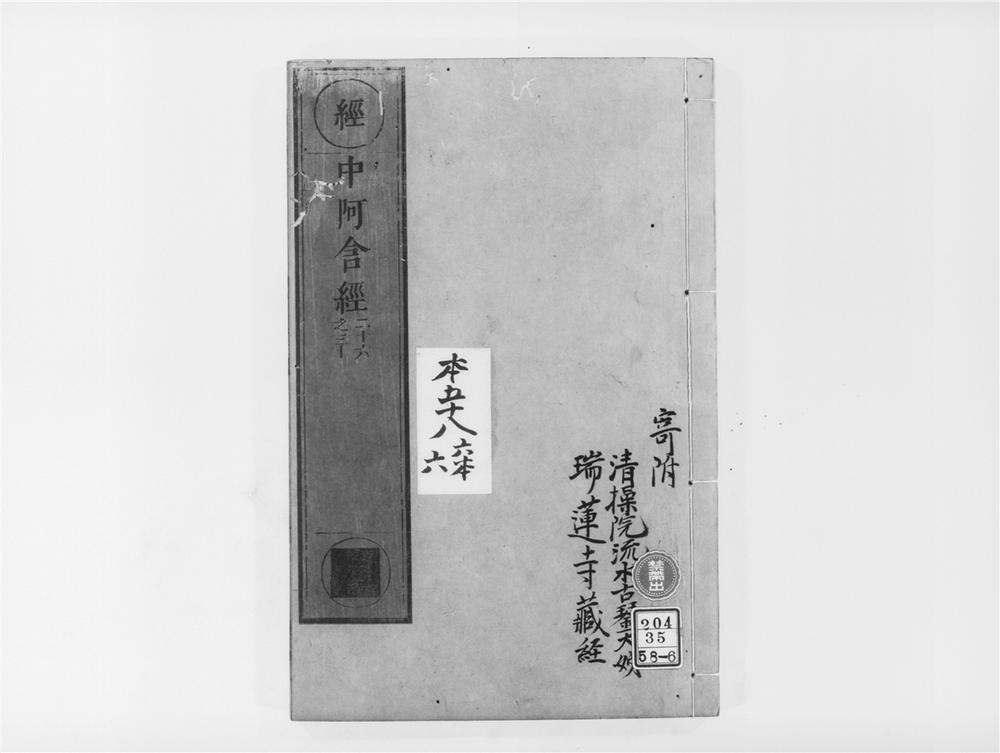 寄附
清操院流水古琴大姉
瑞蓮寺藏経
禁帯出
204
35
58-6
本五十八
六本
六
經
中阿含經
二十六
之三十